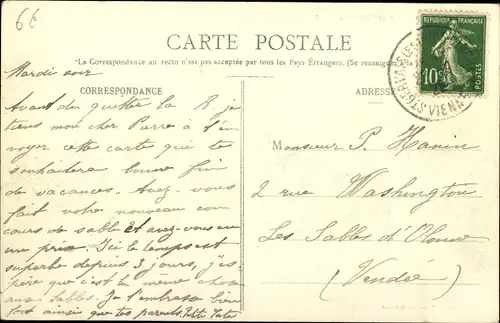 66
CARTE POSTALE
*La Correspondance au recto n'est pas acceptée par tous les Pays Étrangers. (Se renseigner à la
CORRESPONDANCE
ADRESSE
RÉPUBLIQUE FRANÇAISE
10c
POSTES
VIENNE
Mardi soir
Avant de quitter la R. je
tiens mon cher Pierre à t'en
voyer cette carte qui te
souhaitera bonne fin
de vacances. Avez-vous
fait votre nouveau con
cours de sable Et avez-vous eu
un prix. Ici le temps est
superbe depuis 3 jours, j'es
père que c'est la même chose
aux Sables. Je t'embrasse bien
fort ainsi que tes parents.
Monsieur P. Hanin
2 rue Washington
Les Sables d'Olonne
(Vendée)